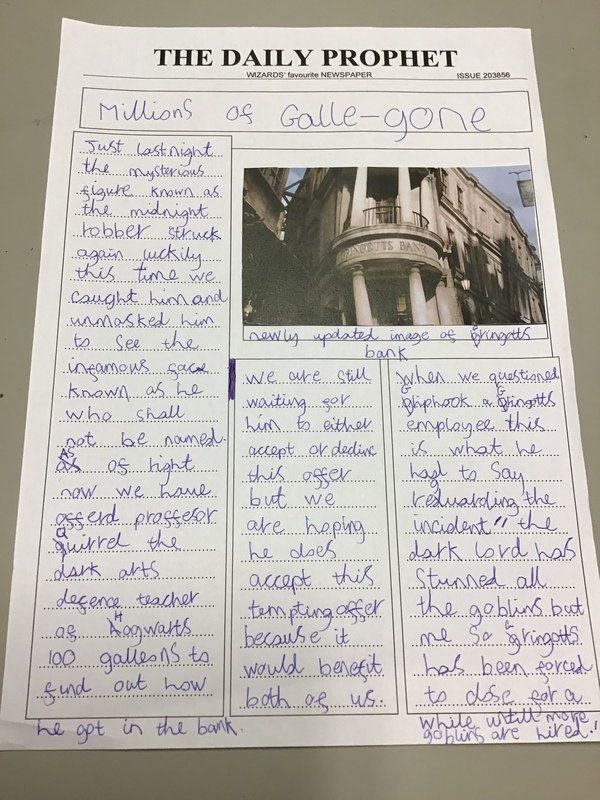 THE DAILY PROPHET
WIZARDS' favourite NEWSPAPER
ISSUE 203856
Millions of Galle-gone
Just last night
the mysterious
figure known as
the midnight
robber struck
again luckily
this time we
caught him and
unmasked him
to see the
infamous face
known as he
who shall
not be named.
As of right
now we have
offerd proffesor
Quirrel the
dark arts
defence teacher
of Hogwarts
100 galleons to
find out how
he got in the bank.
GRINGOTTS BANK
newly updated image of Gringotts
bank
we are still
waiting for
him to either
accept or decline
this offer
but we
are hoping
he does
accept this
tempting offer
because it
would benefit
both of us.
when we questioned
Griphook a Gringotts
employee this
is what he
had to say
reguarding the
incident "the
dark lord has
stunned all
the goblins but
me so Gringotts
has been forced
to close for a
while until more
goblins are hired."